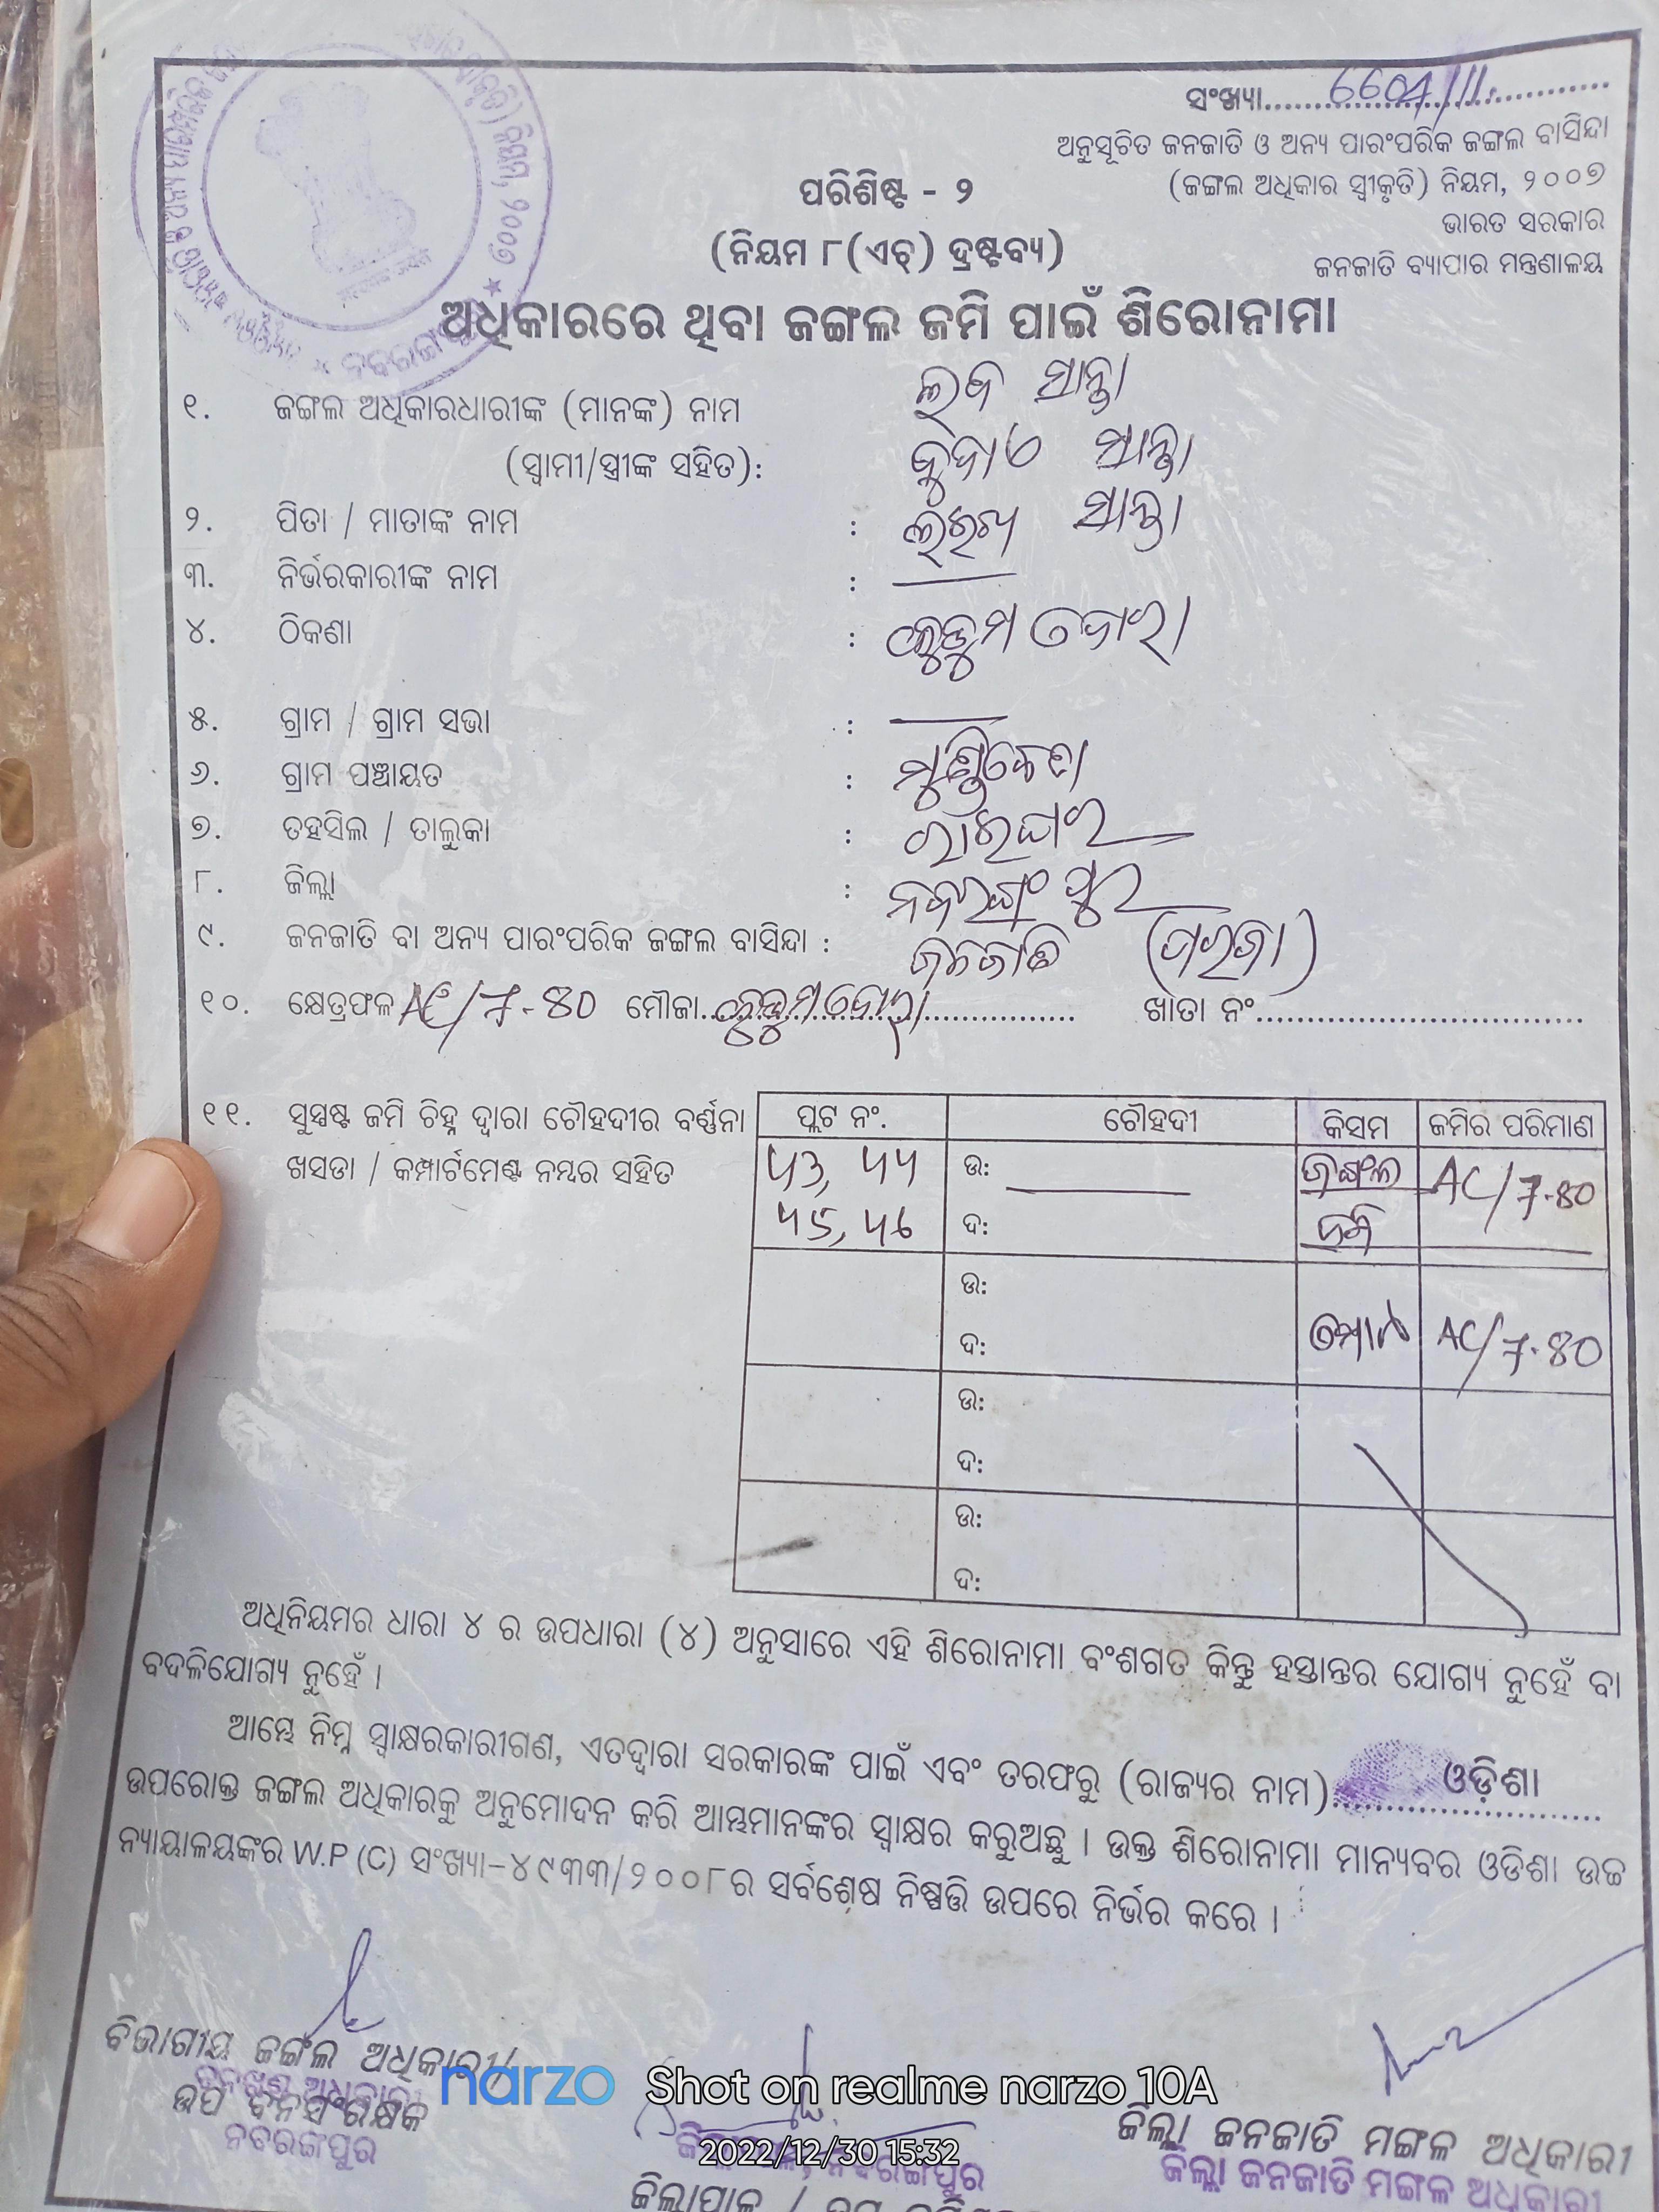 ସଂଖ୍ୟା..........6604/11..........
ଅନୁସୂଚିତ ଜନଜାତି ଓ ଅନ୍ୟ ପାରଂପରିକ ଜଙ୍ଗଲ ବାସିନ୍ଦା
(ଜଙ୍ଗଲ ଅଧିକାର ସ୍ୱୀକୃତି) ନିୟମ, ୨୦୦୭
ଭାରତ ସରକାର
ଜନଜାତି ବ୍ୟାପାର ମନ୍ତ୍ରଣାଳୟ
ପରିଶିଷ୍ଟ - ୨
(ନିୟମ ୮(ଏଚ୍) ଦ୍ରଷ୍ଟବ୍ୟ)
ଅଧିକାରରେ ଥିବା ଜଙ୍ଗଲ ଜମି ପାଇଁ ଶିରୋନାମା
୧. ଜଙ୍ଗଲ ଅଧିକାରଧାରୀଙ୍କ (ମାନଙ୍କ) ନାମ ସାନ୍ତା
(ସ୍ୱାମୀ/ସ୍ତ୍ରୀଙ୍କ ସହିତ): ସାନ୍ତା
୨. ପିତା / ମାତାଙ୍କ ନାମ : ସାନ୍ତା
୩. ନିର୍ଭରକାରୀଙ୍କ ନାମ :
୪. ଠିକଣା :
୫. ଗ୍ରାମ / ଗ୍ରାମ ସଭା :
୬. ଗ୍ରାମ ପଞ୍ଚାୟତ :
୭. ତହସିଲ / ତାଲୁକା : ରାଇଘର
୮. ଜିଲ୍ଲା : ନବରଙ୍ଗପୁର
୯. ଜନଜାତି ବା ଅନ୍ୟ ପାରଂପରିକ ଜଙ୍ଗଲ ବାସିନ୍ଦା : ଜନଜାତି (ପରଜା)
୧୦. କ୍ଷେତ୍ରଫଳ AC/7-80 ମୌଜା.............................. ଖାତା ନଂ..............................
୧୧. ସୁସ୍ପଷ୍ଟ ଜମି ଚିହ୍ନ ଦ୍ୱାରା ଚୌହଦୀର ବର୍ଣ୍ଣନା
ଖସଡା / କମ୍ପାର୍ଟମେଣ୍ଟ ନମ୍ବର ସହିତ
ପ୍ଲଟ ନଂ. ଚୌହଦୀ କିସମ ଜମିର ପରିମାଣ
ଉ: ଜଙ୍ଗଲ AC/7-80
ଦ: ଜମି
ଉ:
ଦ: ମୋଟ AC/7-80
ଉ:
ଦ:
ଉ:
ଦ:
ଅଧିନିୟମର ଧାରା ୪ ର ଉପଧାରା (୪) ଅନୁସାରେ ଏହି ଶିରୋନାମା ବଂଶଗତ କିନ୍ତୁ ହସ୍ତାନ୍ତର ଯୋଗ୍ୟ ନୁହେଁ ବା
ବଦଳିଯୋଗ୍ୟ ନୁହେଁ ।
ଆମ୍ଭେ ନିମ୍ନ ସ୍ୱାକ୍ଷରକାରୀଗଣ, ଏତଦ୍ୱାରା ସରକାରଙ୍କ ପାଇଁ ଏବଂ ତରଫରୁ (ରାଜ୍ୟର ନାମ)..........ଓଡ଼ିଶା..........
ଉପରୋକ୍ତ ଜଙ୍ଗଲ ଅଧିକାରକୁ ଅନୁମୋଦନ କରି ଆମ୍ଭମାନଙ୍କର ସ୍ୱାକ୍ଷର କରୁଅଛୁ । ଉକ୍ତ ଶିରୋନାମା ମାନ୍ୟବର ଓଡିଶା ଉଚ୍ଚ
ନ୍ୟାୟାଳୟଙ୍କର W.P (C) ସଂଖ୍ୟା-୪୯୩୩/୨୦୦୮ର ସର୍ବଶେଷ ନିଷ୍ପତ୍ତି ଉପରେ ନିର୍ଭର କରେ ।
ବିଭାଗୀୟ ଜଙ୍ଗଲ ଅଧିକାରୀ/
ଉପ ବନସଂରକ୍ଷକ
ନବରଙ୍ଗପୁର
ଜିଲ୍ଲାପାଳ, ନବରଙ୍ଗପୁର
ଜିଲ୍ଲାପାଳ /
ଜିଲ୍ଲା ଜନଜାତି ମଙ୍ଗଳ ଅଧିକାରୀ
ଜିଲ୍ଲା ଜନଜାତି ମଙ୍ଗଳ ଅଧିକାରୀ
narzo Shot on realme narzo 10A
2022/12/30 15:32